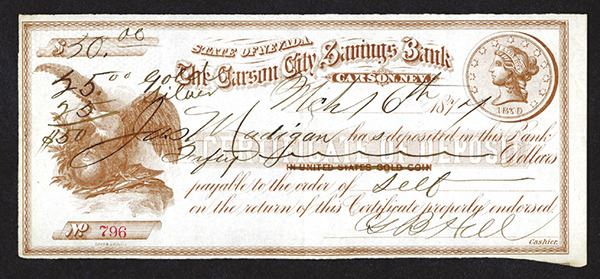 $50.00
STATE OF NEVADA.
The Carson City Savings Bank
CARSON, NEV.
25 00 gold
25 silver
$50
Mch 16th 187
1850
Jas Madigan has deposited in this Bank
CERTIFICATE OF DEPOSIT
Fifty Dollars
IN UNITED STATES GOLD COIN
payable to the order of Self
on the return of this Certificate properly endorsed.
No 796
Hill
Cashier.